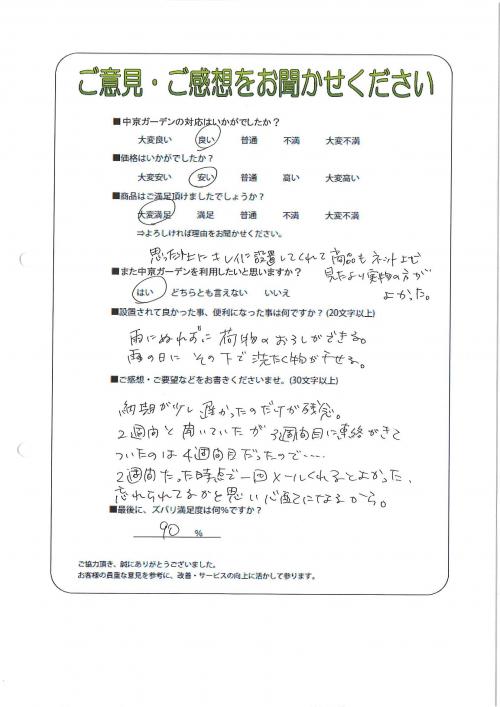 ご意見・ご感想をお聞かせください
■中京ガーデンの対応はいかがでしたか？
大変良い 良い 普通 不満 大変不満
■価格はいかがでしたか？
大変安い 安い 普通 高い 大変高い
■商品はご満足頂けましたでしょうか？
大変満足 満足 普通 不満 大変不満
⇒よろしければ理由をお聞かせください。
思った以上にキレイに設置してくれて商品もネット上で
見たより実物の方が
よかった。
■また中京ガーデンを利用したいと思いますか？
はい どちらとも言えない いいえ
■設置されて良かった事、便利になった事は何ですか？(20文字以上)
雨にぬれずに荷物のおろしができる。
雨の日にその下で洗たく物が干せる。
■ご感想・ご要望などをお書きくださいませ。(30文字以上)
納期が少し遅かったのだけが残念。
2週間と聞いていたが3週間目に連絡がきて
ついたのは4週間目だったので……
2週間たった時点で一回メールくれるとよかった、
忘れられてるかと思い心配になるから。
■最後に、ズバリ満足度は何％ですか？
90 ％
ご協力頂き、誠にありがとうございました。
お客様の貴重な意見を参考に、改善・サービスの向上に活かして参ります。